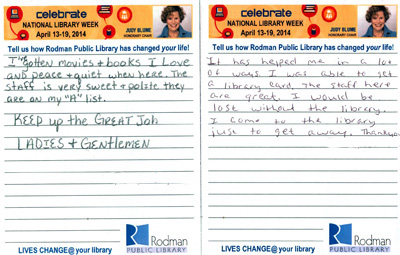 celebrate
NATIONAL LIBRARY WEEK
April 13-19, 2014
JUDY BLUME
HONORARY CHAIR
Tell us how Rodman Public Library has changed your life!
I've gotten movies + books I Love
and peace + quiet when here. The
staff is very sweet + polite they
are on my "A" list.
KEEP up the GREAT Job
LADIES & GENTLEMEN
Rodman
PUBLIC LIBRARY
LIVES CHANGE@ your library
celebrate
NATIONAL LIBRARY WEEK
April 13-19, 2014
JUDY BLUME
HONORARY CHAIR
Tell us how Rodman Public Library has changed your life!
It has helped me in a lot
of ways. I was able to get
a library card. The staff here
are great. I would be
lost without the library.
I come to the library
just to get away. Thankyou
Rodman
PUBLIC LIBRARY
LIVES CHANGE@ your library